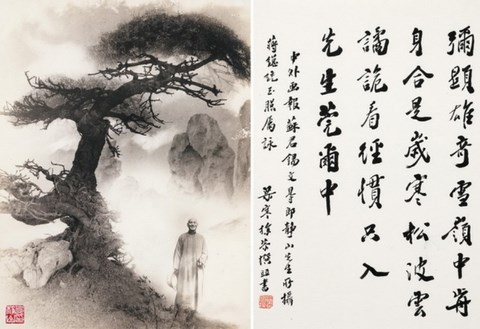 彌顯雄奇雪嶺中將
身合是歲寒松波雲
譎詭看經慣只入
先生莞爾中
中外画報蘇君錫文畀郎靜山先生所攝
玉照屬詠
寒徐撰並書